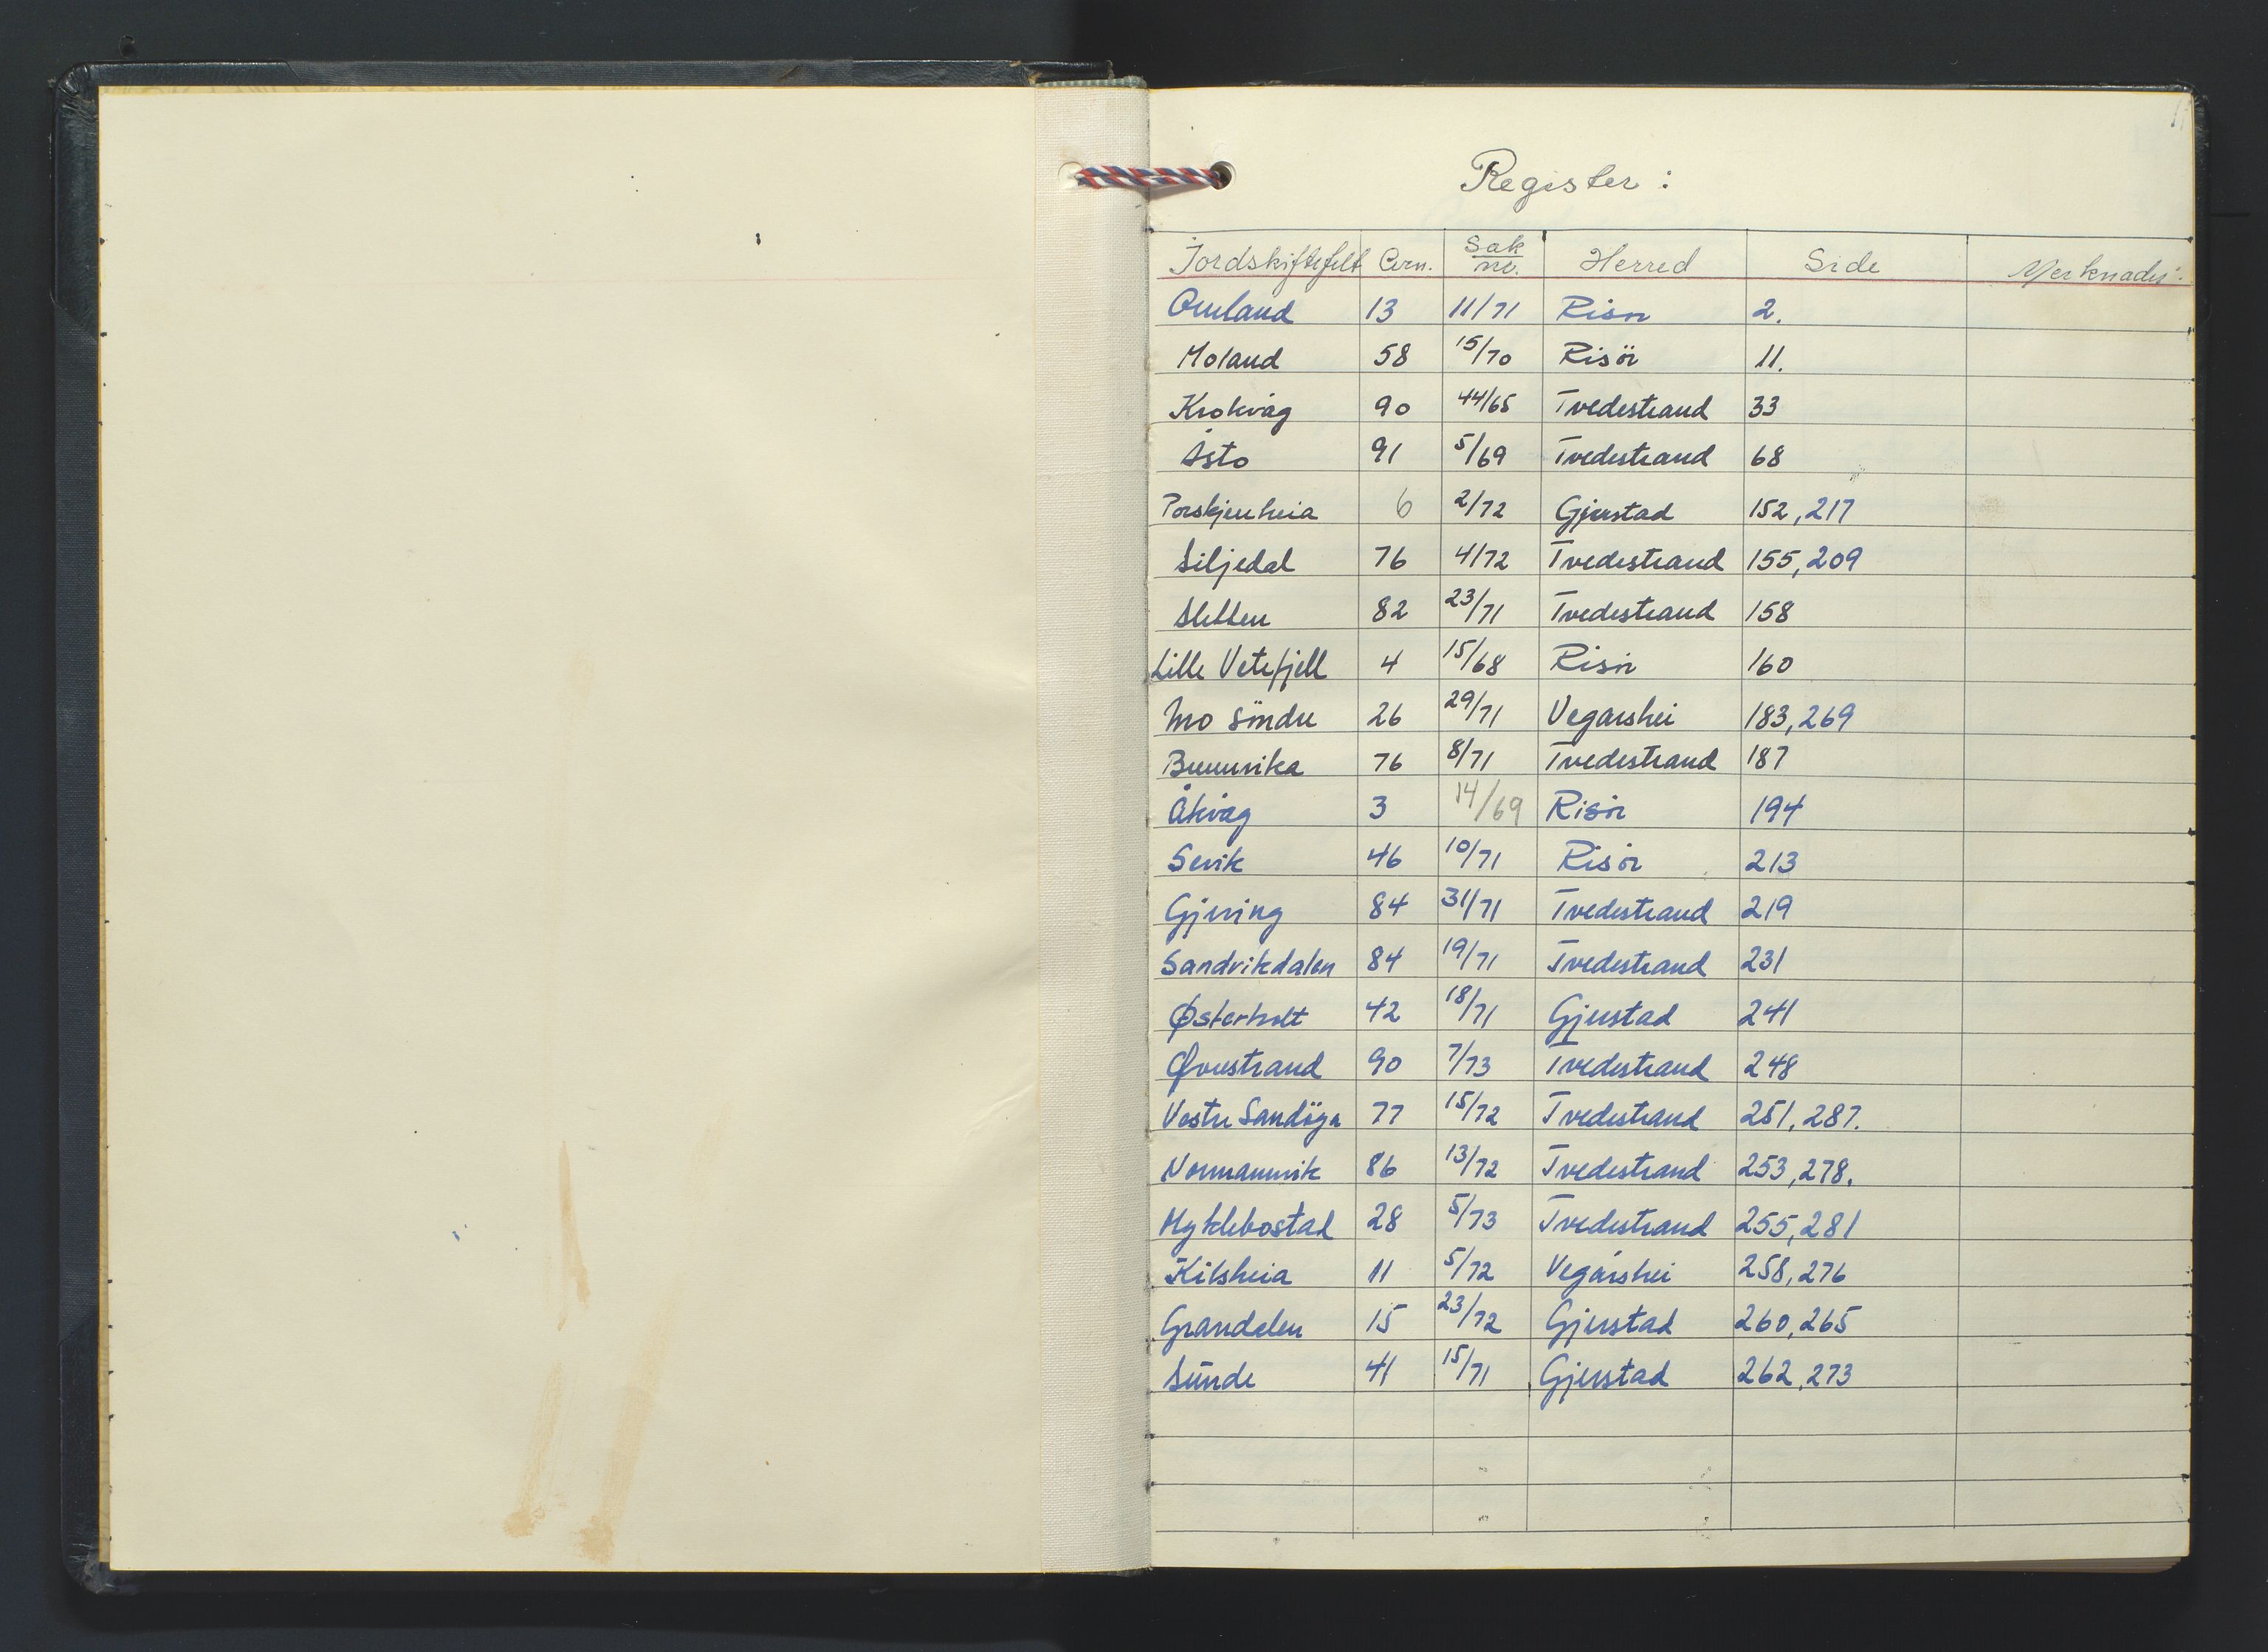 Register:
Jordskiftefelt G.nr. Sak nr. Herred Side Merknader:
Omland 13 11/71 Risør 2.
Moland 58 15/70 Risör 11.
Krokvåg 90 44/65 Tvedestrand 33
Åsto 91 5/69 Tvedestrand 68
Porskjenheia 6 2/72 Gjerstad 152, 217
Siljedal 76 4/72 Tvedestrand 155, 209
Sletten 82 23/71 Tvedestrand 158
Lille Vetefjell 4 15/68 Risör 160
Mo söndre 26 29/71 Vegårshei 183, 269
76 8/71 Tvedestrand 187
Åkvåg 3 14/69 Risör 194
Sevik 46 10/71 Risör 213
Gjeving 84 31/71 Tvedestrand 219
Sandvikdalen 84 19/71 Tvedestrand 231
Østerholt 42 18/71 Gjerstad 241
Øvrestrand 90 7/73 Tvedestrand 248
Vestre Sandöya 77 15/72 Tvedestrand 251, 287.
Normannvik 86 13/72 Tvedestrand 253, 278.
Myklebostad 28 5/73 Tvedestrand 255, 281
Kilsheia 11 5/72 Vegårshei 258, 276
Grandalen 15 23/72 Gjerstad 260, 265
Sunde 41 15/71 Gjerstad 262, 273